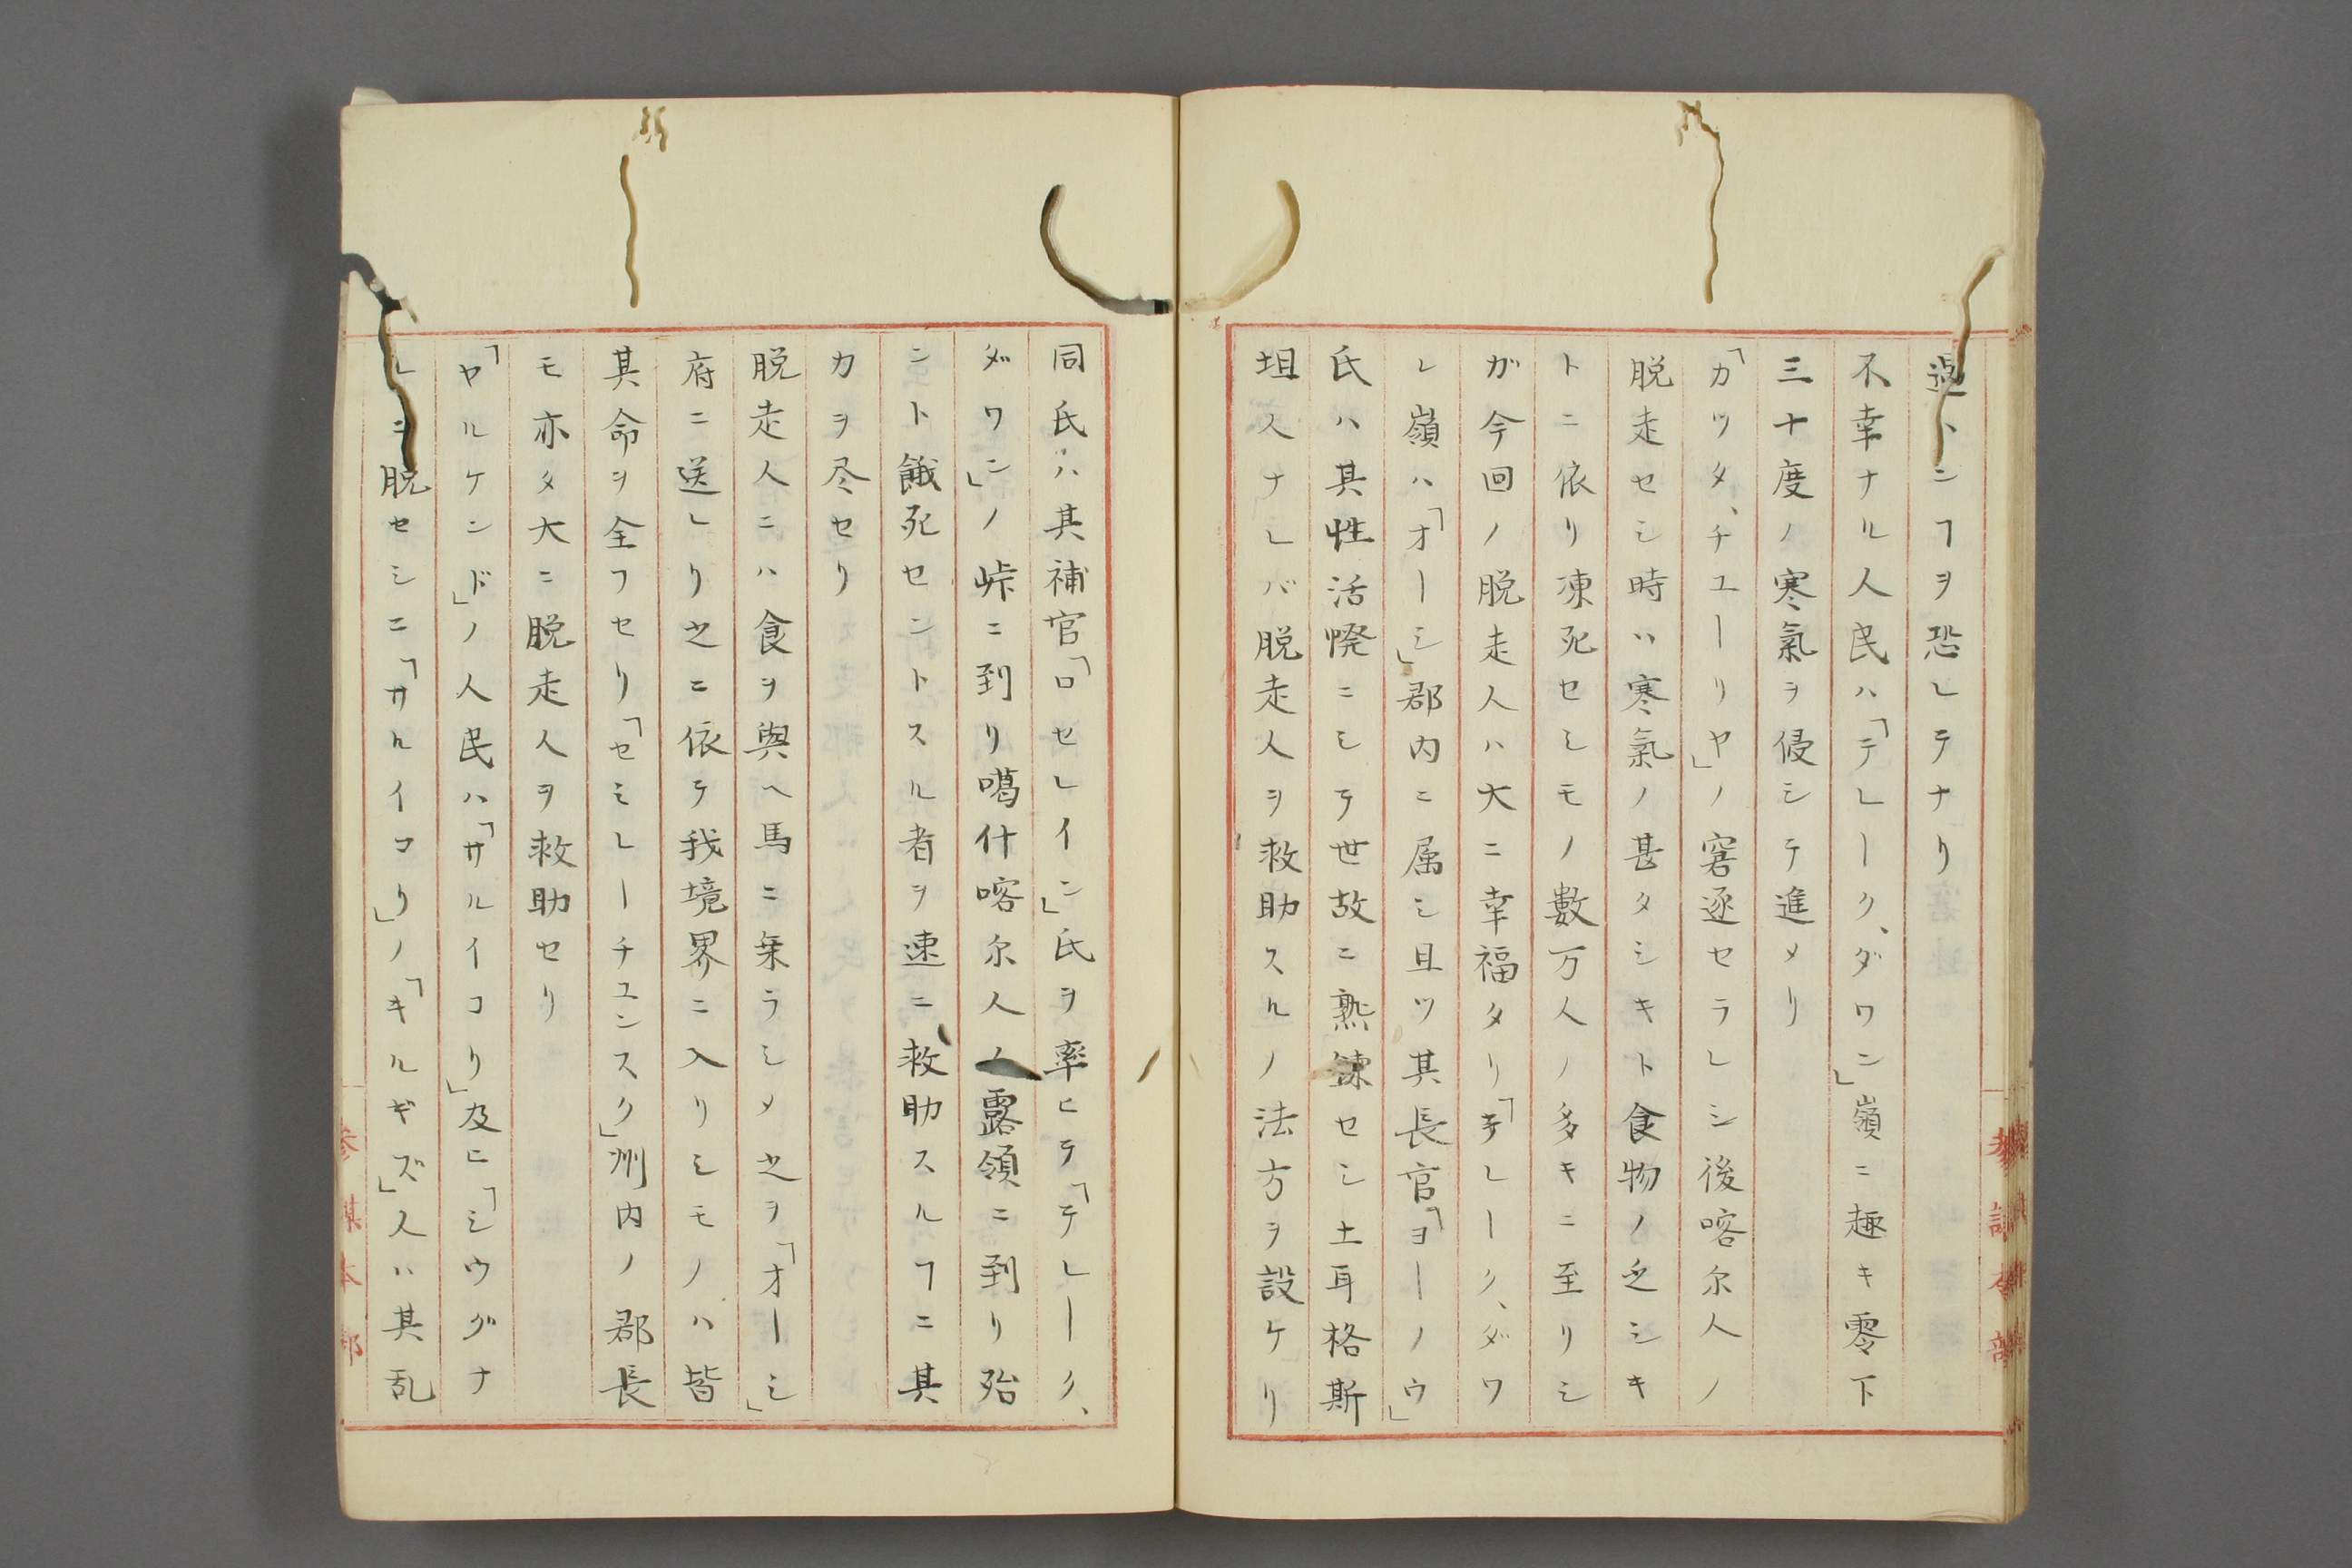 トンヿヲ恐レテナリ
不幸ナル人民ハ「テレーク、ダワン」嶺ニ趣キ零下
三十度ノ寒氣ヲ侵シテ進メリ
「カツタ、チユーリヤ」ノ窘逐セラレシ後喀尓人ノ
脱走セシ時ハ寒氣ノ甚タシキト食物ノ乏シキ
トニ依リ凍死セシモノ數万人ノ多キニ至リシ
ガ今回ノ脱走人ハ大ニ幸福タリ「テレーク、ダワ
レ嶺ハ「オーシ」郡内ニ属シ且ツ其長官「ヨーノウ」
氏ハ其性活慠ニシテ世故ニ熟錬セシ土耳格斯
坦人ナレバ脱走人ヲ救助スルノ法方ヲ設ケリ
同氏ハ其補官「ロセレイン」氏ヲ率ヒテ「テレーク、
ダワン」ノ峠ニ到リ噶什喀尓人ノ露領ニ到リ殆
ント餓死セントスル者ヲ速ニ救助スルヿニ其
力ヲ尽セリ
脱走人ニハ食ヲ與ヘ馬ニ乗ラシメ之ヲ「オーシ」
府ニ送レリ之ニ依テ我境界ニ入リシモノハ皆
其命ヲ全フセリ「セミレーチユンスク」州内ノ郡長
モ亦タ大ニ脱走人ヲ救助セリ
「ヤルケンド」ノ人民ハ「サルイコリ」及ヒ「シウグナ
レヨ脱セシニ「サルイコリ」ノ「キルギズ」人ハ其乱
參謀本部